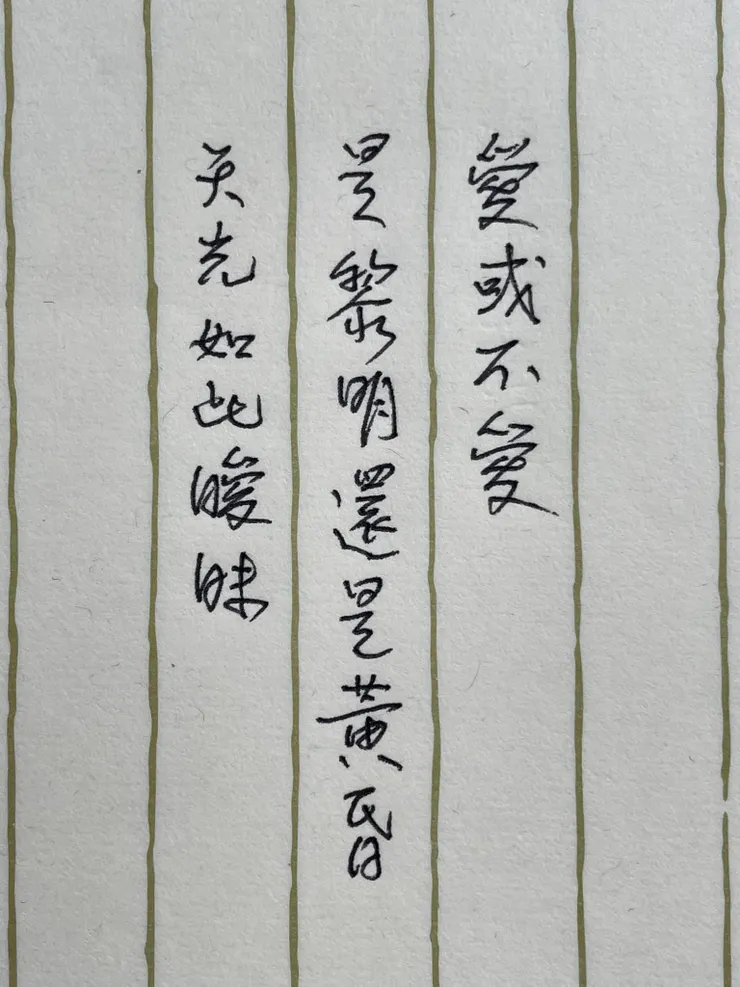 愛或不愛
是黎明還是黃昏
天光如此曖昧